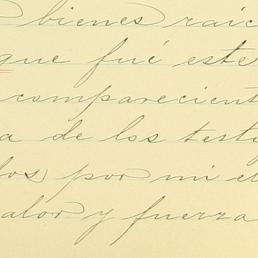 bienes raíc
que fué este
comparecient
a de los testi
los por mi el
alor y fuerza